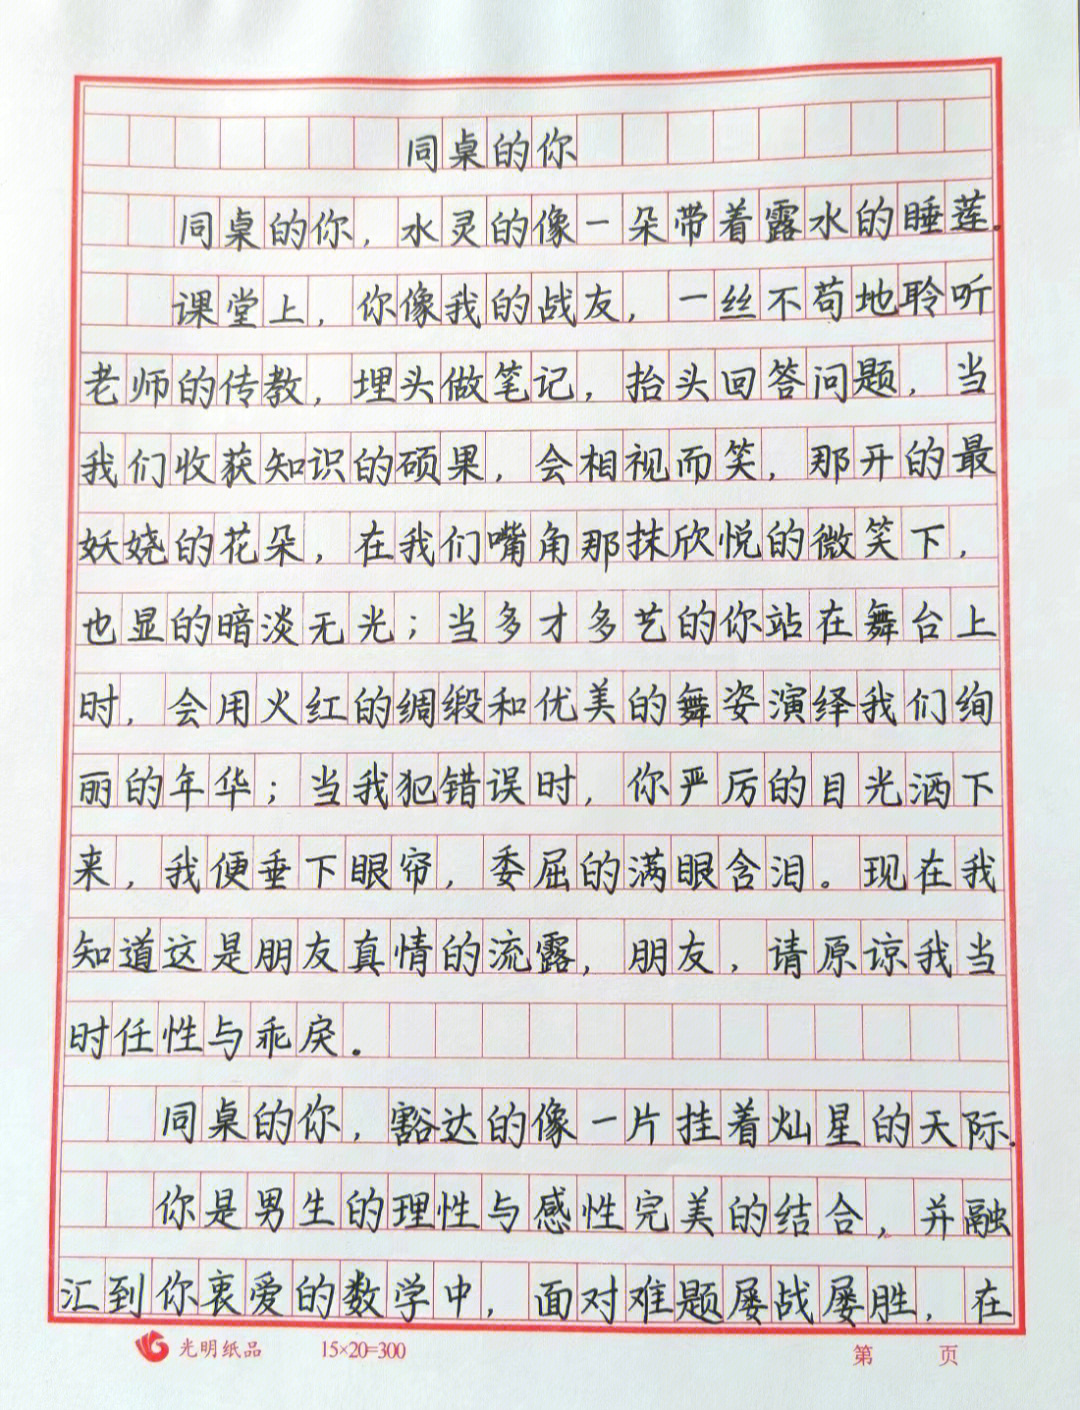 同桌的你
同桌的你，水灵的像一朵带着露水的睡莲。
课堂上，你像我的战友，一丝不苟地聆听
老师的传教，埋头做笔记，抬头回答问题，当
我们收获知识的硕果，会相视而笑，那开的最
妖娆的花朵，在我们嘴角那抹欣悦的微笑下，
也显的暗淡无光；当多才多艺的你站在舞台上
时，会用火红的绸缎和优美的舞姿演绎我们绚
丽的年华；当我犯错误时，你严厉的目光洒下
来，我便垂下眼帘，委屈的满眼含泪。现在我
知道这是朋友真情的流露，朋友，请原谅我当
时任性与乖戾。
同桌的你，豁达的像一片挂着灿星的天际。
你是男生的理性与感性完美的结合，并融
汇到你衷爱的数学中，面对难题屡战屡胜，在
光明纸品 15×20=300 第 页